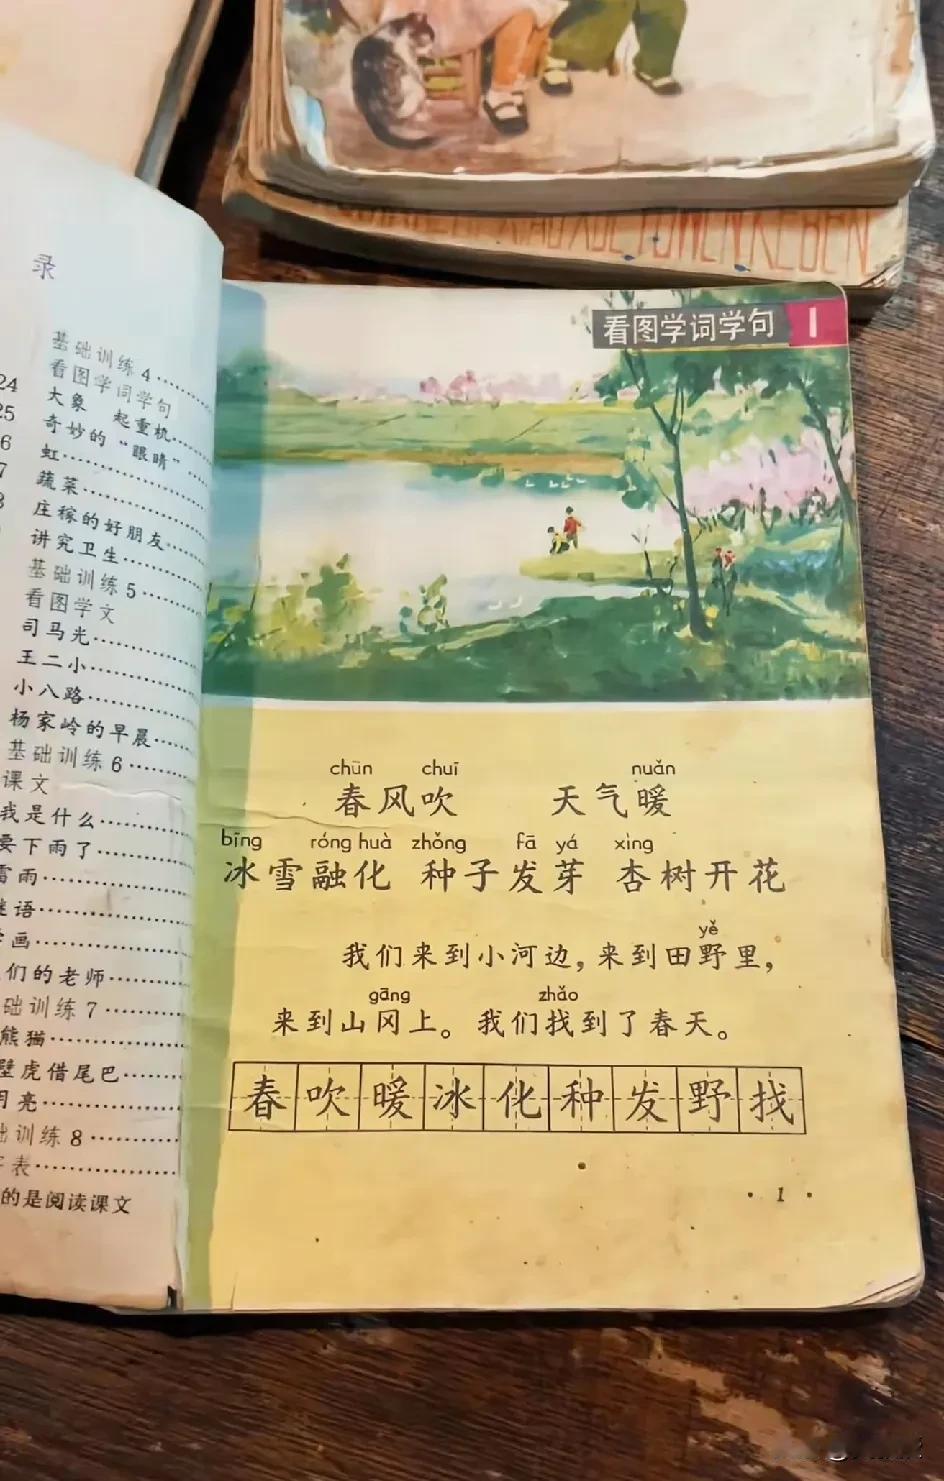 录
基础训练4
24 看图学词学句
25 大象 起重机
6 奇妙的“眼睛”
7 虹
蔬菜
庄稼的好朋友
讲究卫生
基础训练5
看图学文
司马光
王二小
小八路
杨家岭的早晨
基础训练6
课文
我是什么
要下雨了
雷雨
谜语
画
们的老师
础训练7
熊猫
壁虎借尾巴
月亮
础训练8
表
的是阅读课文
KEBEN
看图学词学句 1
chūn chuī nuǎn
春风吹 天气暖
bīng róng huà zhǒng fā yá xìng
冰雪融化 种子发芽 杏树开花
yě
我们来到小河边，来到田野里，
gāng zhǎo
来到山冈上。我们找到了春天。
春吹暖冰化种发野找
· 1 ·